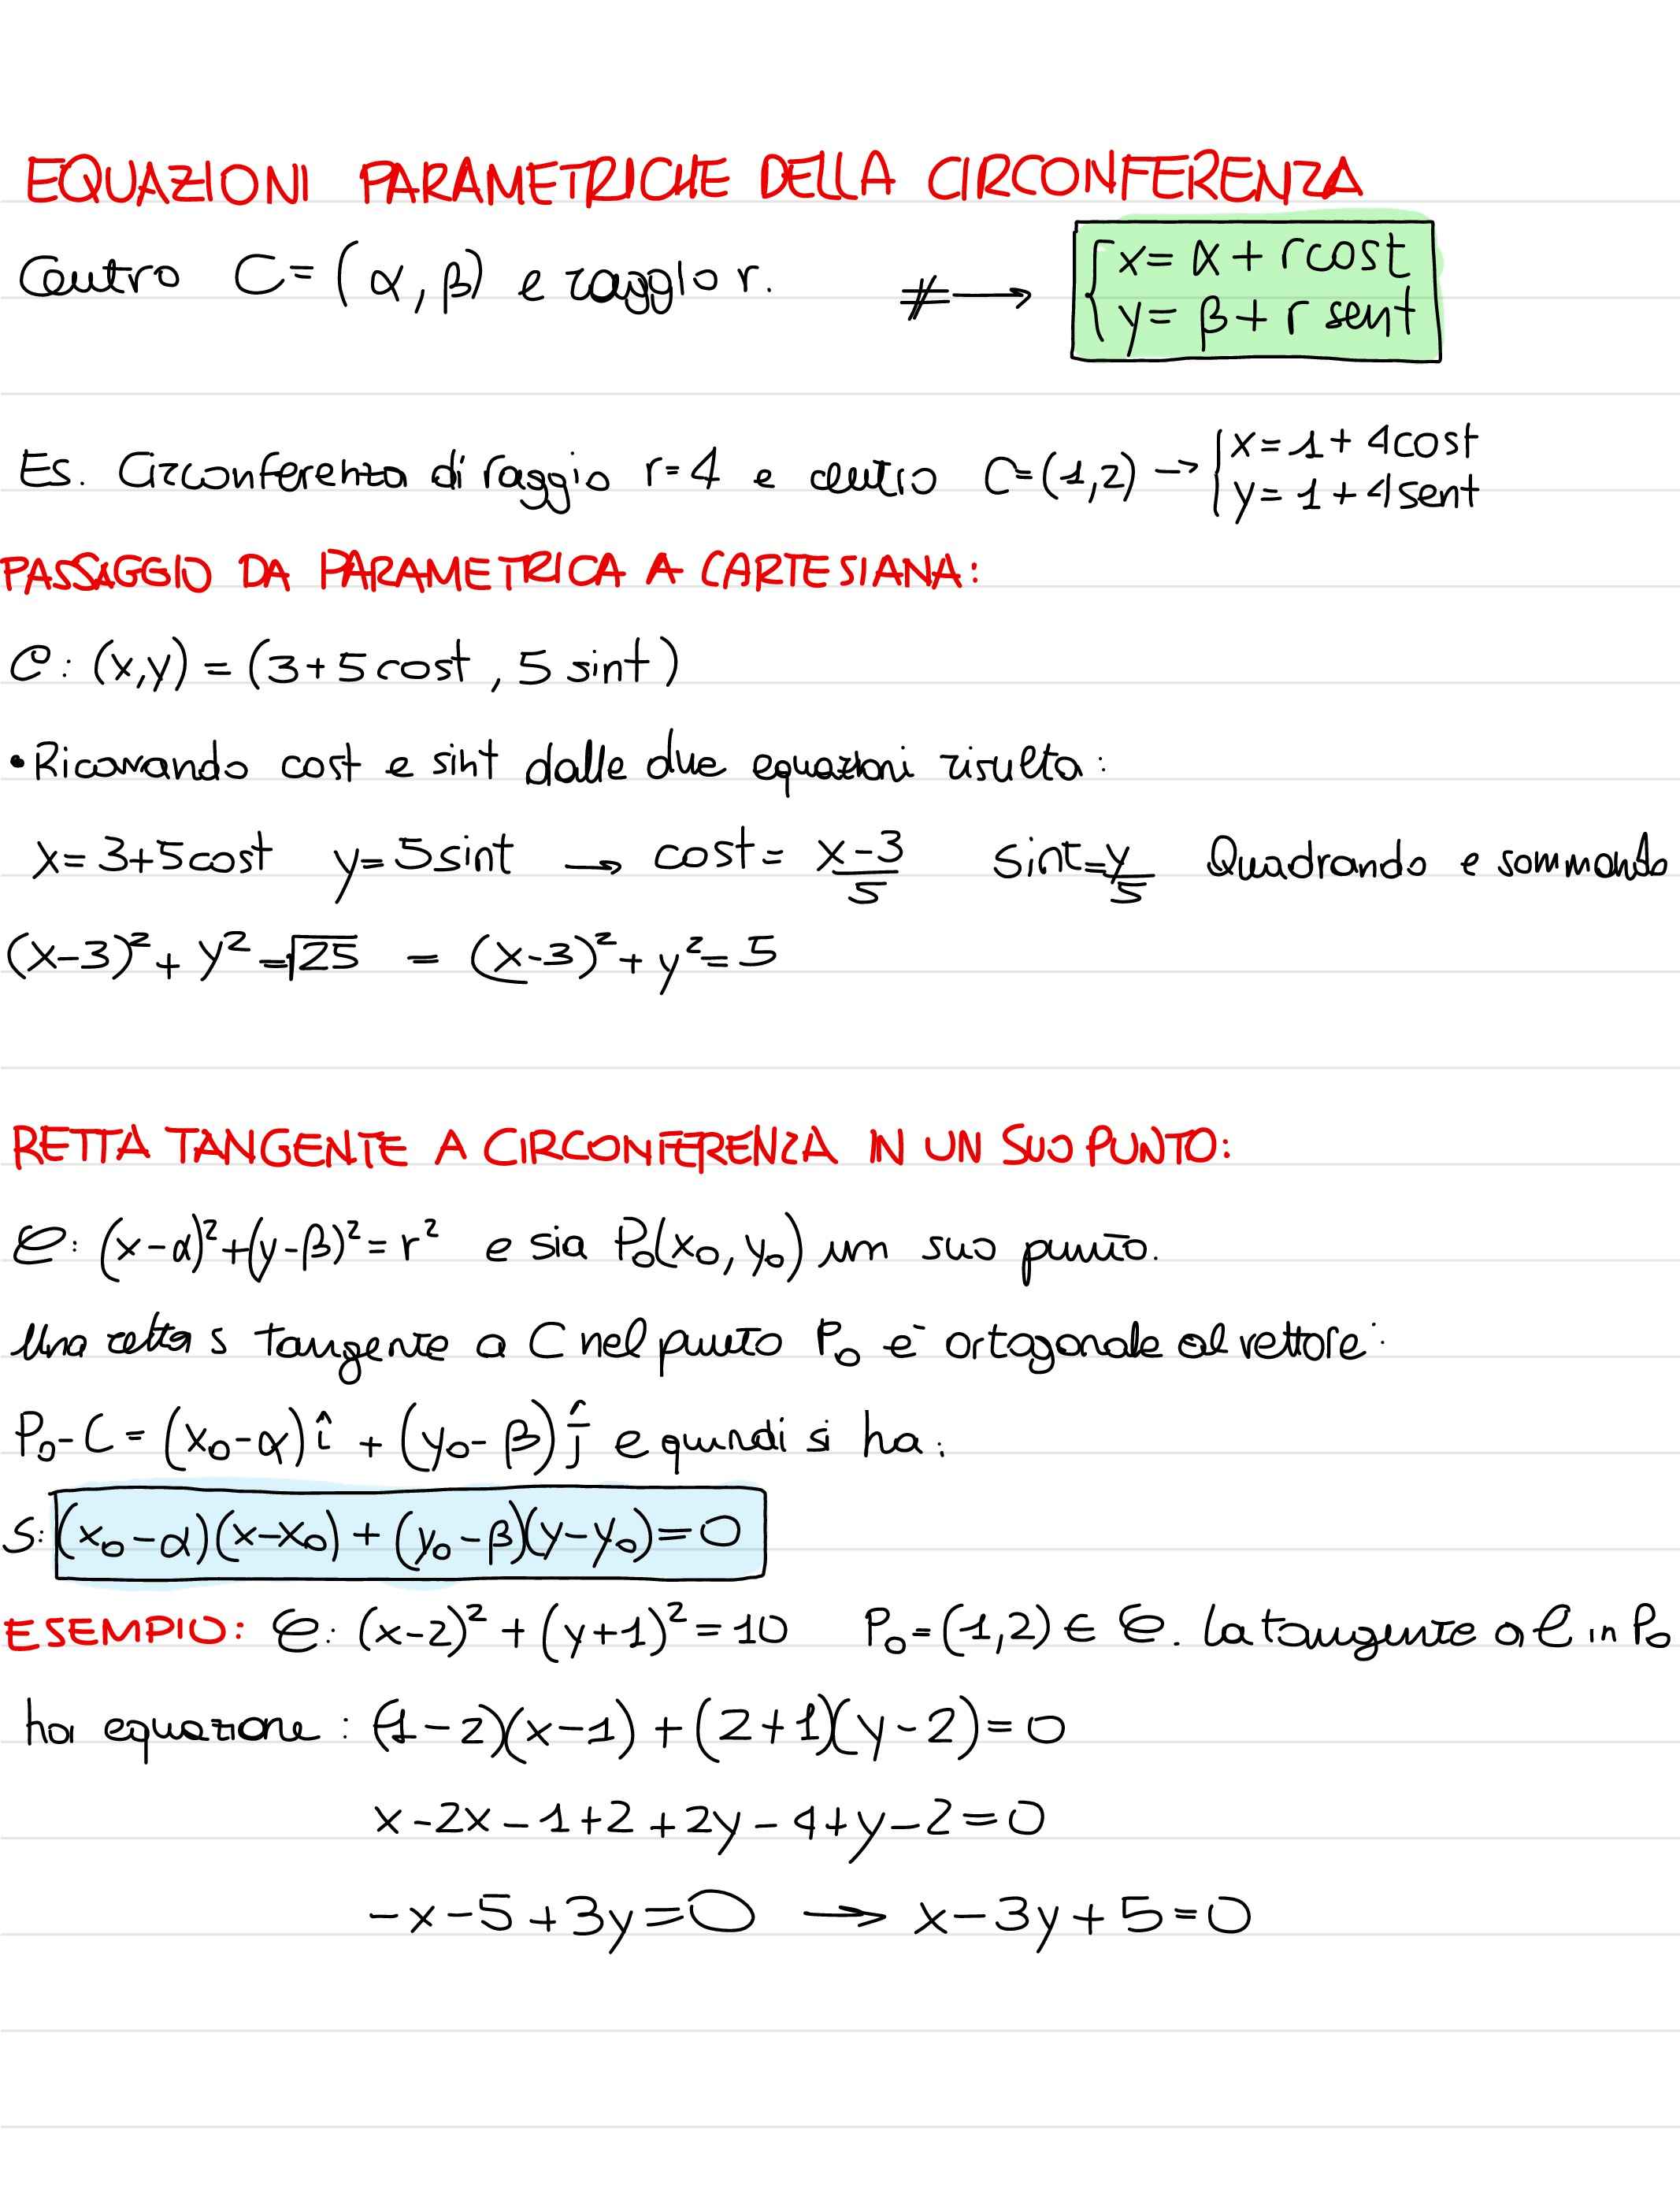 EQUAZIONI PARAMETRICHE DELLA CIRCONFERENZA
Centro C=(α,β) e raggio r. #⟶ {x=α+rcost
y=β+r sent
Es. Circonferenza di raggio r=4 e centro C=(1,2)→{x=1+4cost
y=1+4sent
PASSAGGIO DA PARAMETRICA A CARTESIANA:
C: (x,y)=(3+5cost, 5 sint)
•Ricavando cost e sint dalle due equazioni risulta:
x=3+5cost y=5sint → cost=(x-3)/5 sint=y/5 Quadrando e sommando
(x-3)²+y²=√25 = (x-3)²+y²=5
RETTA TANGENTE A CIRCONFERENZA IN UN SUO PUNTO:
C: (x-α)²+(y-β)²=r² e sia P₀(x₀,y₀) un suo punto.
Una retta s tangente a C nel punto P₀ è ortogonale al vettore:
P₀-C=(x₀-α)î+(y₀-β)ĵ e quindi si ha:
S: (x₀-α)(x-x₀)+(y₀-β)(y-y₀)=0
ESEMPIO: C: (x-2)²+(y+1)²=10 P₀=(1,2)∈C. La tangente a C in P₀
ha equazione: (1-2)(x-1)+(2+1)(y-2)=0
x-2x-1+2+2y-4+y-2=0
-x-5+3y=0 ⟶ x-3y+5=0